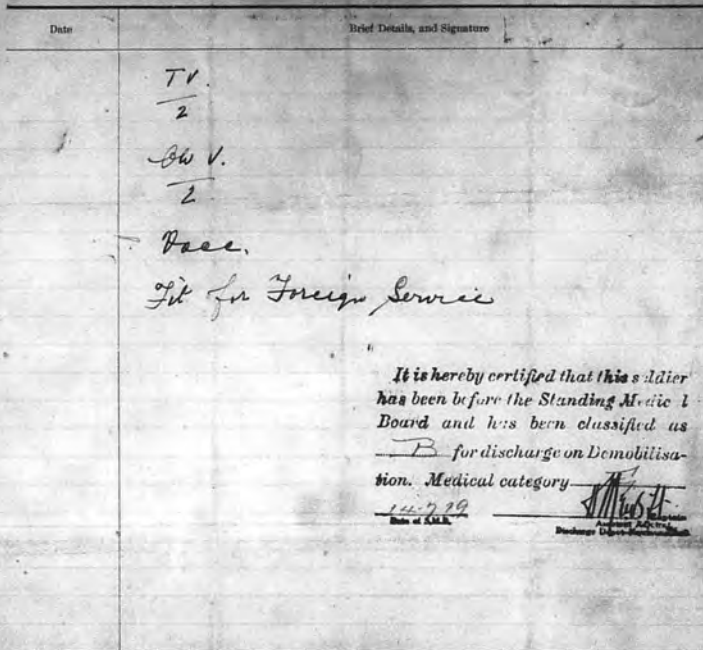 Date Brief Details, and Signature
T V.
2
V.
2
Vacc.
Fit for Foreign Service
It is hereby certified that this s ldier
has been before the Standing Medic l
Board and has been classified as
B for discharge on Demobilisa-
tion. Medical category
14.7.19
Date of S.M.B.
Discharge